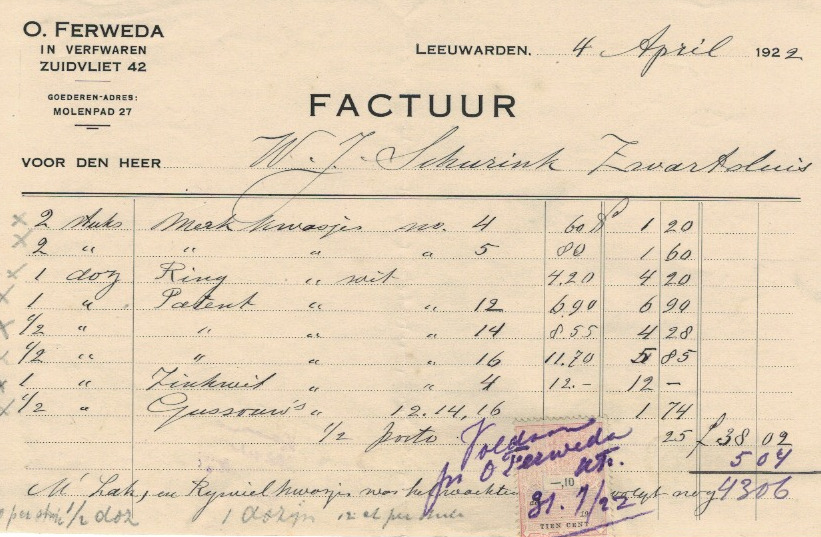 O. FERWEDA
IN VERFWAREN
ZUIDVLIET 42
GOEDEREN-ADRES:
MOLENPAD 27
LEEUWARDEN, 4 April 1922
FACTUUR
VOOR DEN HEER W. J. Schurink Zwartsluis
2 stuks Merkkwasjes no. 4 60 1 20
2 " " " 5 80 1 60
1 doz Ring " wit 4.20 4 20
1 " Patent " " 12 6.90 6 90
1/2 " " " " 14 8.55 4 28
1/2 " " " " 16 11.70 5 85
1 " Zinkwit " " 4 12.- 12 -
1/2 " Gussouw's " 12.14,16 1 74
1/2 porto 25 f 38 02
5 04
43 06
Voldaan
pr O Ferweda
31.7/22
-,10
TIEN CENT
Lak, en Rijwielkwasjes volgt nog
1/2 doz 1 dozijn 12 ct per